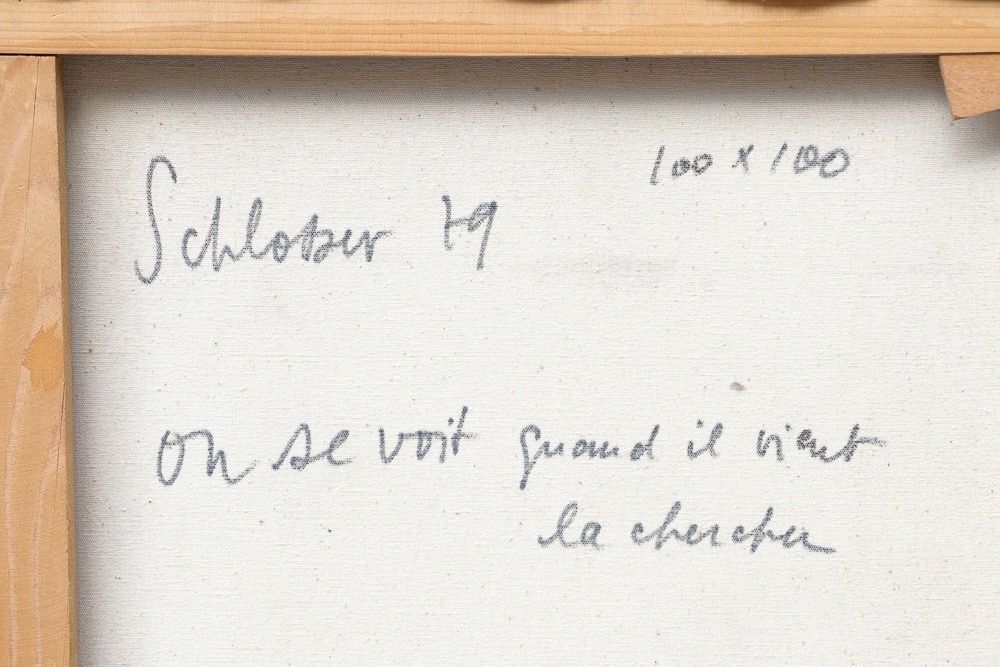 Schlosser 79
100 x 100
on se voit quand il vient
la chercher